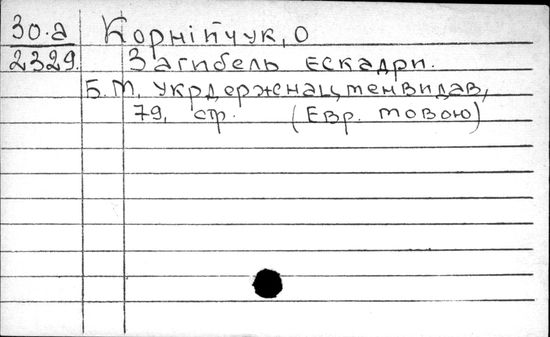 30.а Корнійчук, О
2329. Загибель ескадри.
Б.М, укрдержнацменвидав,
79, стр. (Евр. мовою)